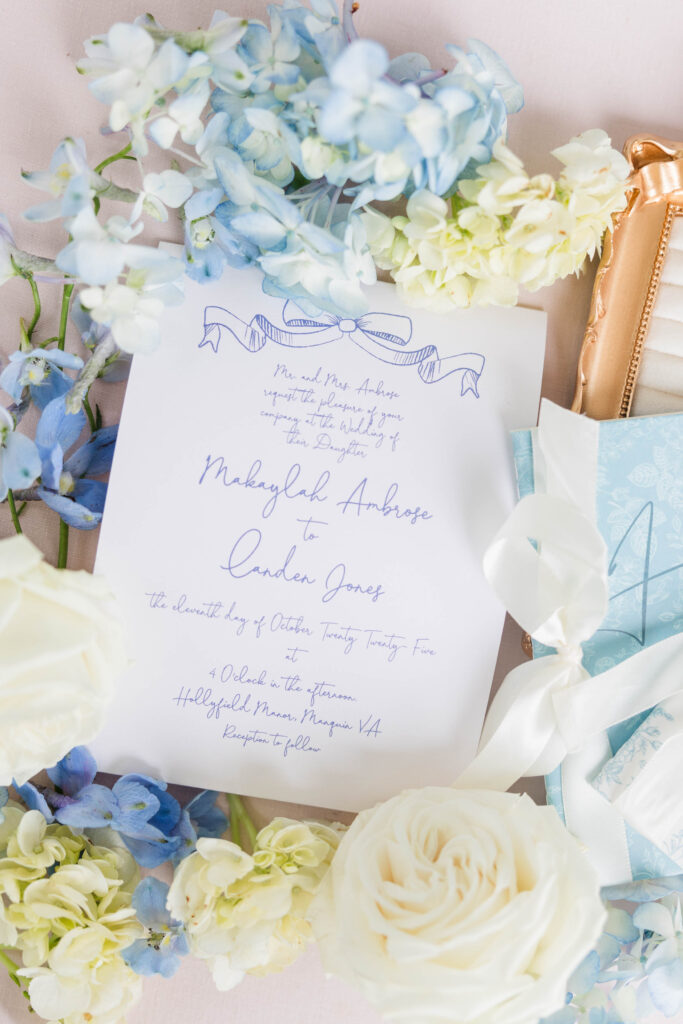 Mr. and Mrs. Ambrose
request the pleasure of your
company at the Wedding of
their Daughter
Makaylah Ambrose
to
Canden Jones
the eleventh day of October Twenty Twenty-Five
at
4 O'clock in the afternoon.
Hollyfield Manor, Manquin VA
Reception to follow
A